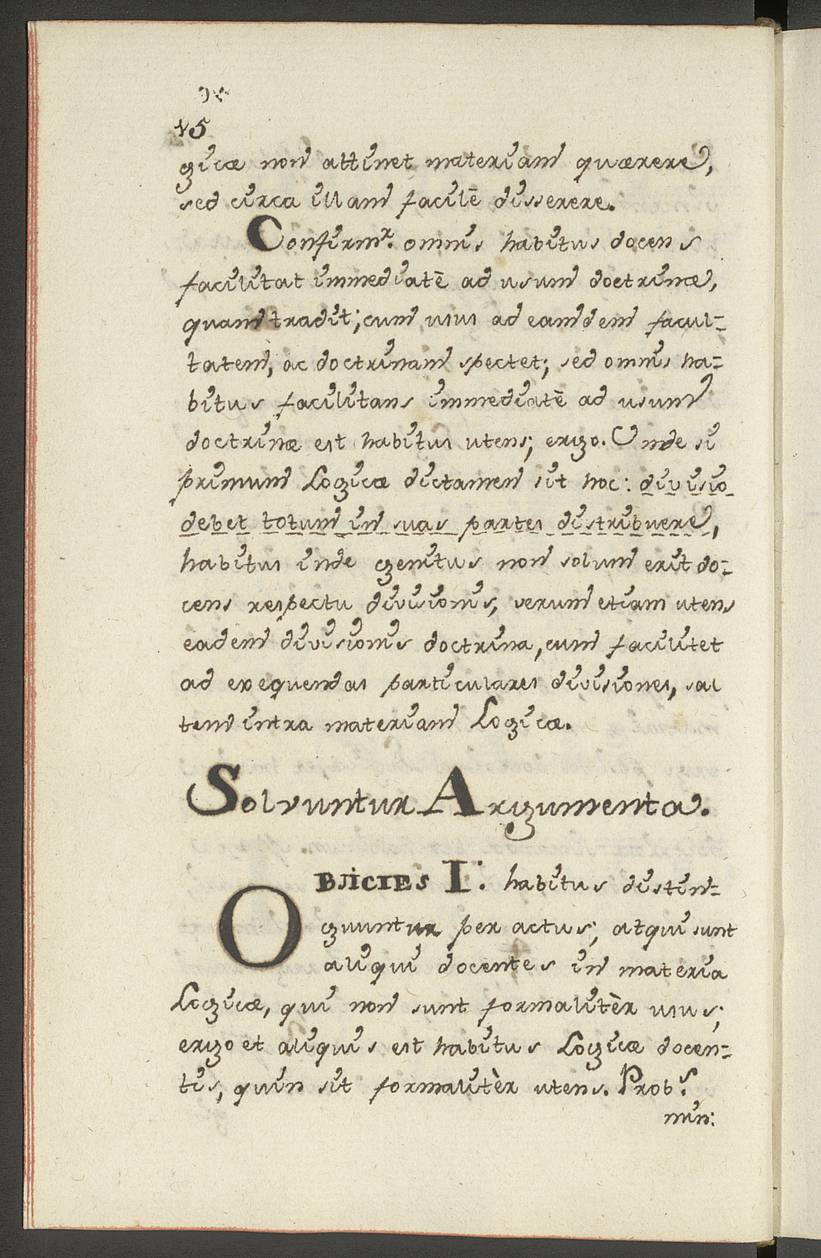 45
gicæ non attinet materiam quærere,
sed circa illam facilè disserere.
Confirmʳ. omnis habitus docens
facilitat immediatè ad usum doctrinæ,
quam tradit; cum usus ad eamdem facul-
tatem, ac doctrinam spectet; sed omnis ha-
bitus facilitans immediatè ad usum
doctrinæ est habitus utens; ergo. Unde si
primum Logicæ dictamen sit hoc: divisio
debet totum in suas partes distribuere,
habitus inde genitus non solum erit do-
cens respectu divisionis, verum etiam utens
eadem divisionis doctrina, cum facilitet
ad exequendas particulares divisiones, sal
tem intra materiam Logicæ.
Solvuntur Argumenta.
OBJICIES I.° habitus distin-
guuntur per actus; atqui sunt
aliqui docentes in materia
Logicæ, qui non sunt formalitèr usus;
ergo et aliquis est habitus Logicæ docen-
tis, quin sit formalitèr utens. Probʳ.
min: